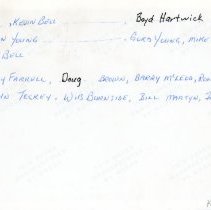 , KEVIN BELL , Boyd Hartwick
N YOUNG GURD YOUNG, MIKE
BELL
Y FARRELL, Doug BROWN, BARRY McLEOD, RO
TECKEY. WIB BURNSIDE, BILL MARTYN,